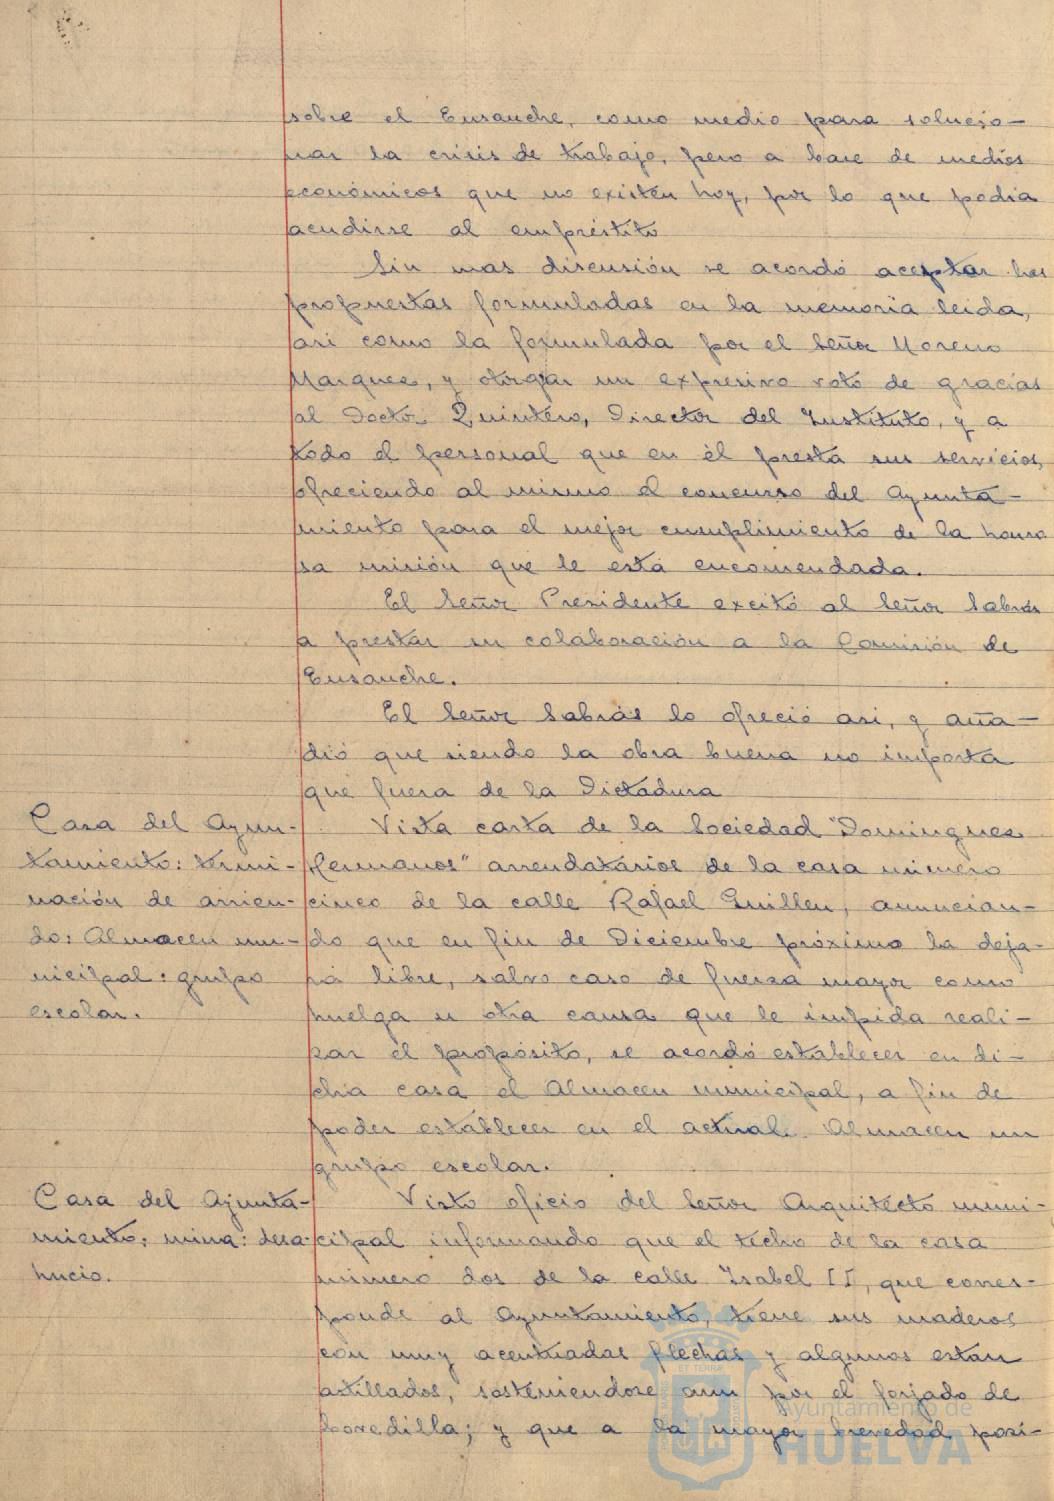 sobre el Ensanche, como medio para solucio-
nar la crisis de trabajo, pero a base de medios
económicos que no existen hoy, por lo que podia
acudirse al empréstito
Sin mas discusión se acordó aceptar las
propuestas formuladas en la memoria leida,
asi como la formulada por el Señor Moreno
Marquez, y otorgar un expresivo voto de gracias
al Doctor Quintero, Director del Instituto, y a
todo el personal que en él presta sus servicios,
ofreciendo al mismo el concurso del Ayunta-
miento para el mejor cumplimiento de la honro
sa misión que le está encomendada.
El Señor Presidente excitó al Señor Sabrás
a prestar su colaboración a la Comisión de
Ensanche.
El Señor Sabrás lo ofreció asi, y aña-
dió que siendo la obra buena no importa
que fuera de la Dictadura
Casa del Ayun-
tamiento: termi-
nación de arrien-
do: Almacen mu-
nicipal: grupo
escolar.
Vista carta de la Sociedad "Dominguez
Hermanos" arrendatarios de la casa número
cinco de la calle Rafael Guillen, anuncian-
do que en fin de Diciembre próximo la deja-
rá libre, salvo caso de fuerza mayor como
huelga u otra causa que le impida reali-
zar el propósito, se acordó establecer en di-
cha casa el Almacen municipal, a fin de
poder establecer en el actual Almacen un
grupo escolar.
Casa del Ayunta-
miento: ruina: desa-
hucio.
Visto oficio del Señor Arquitecto muni-
cipal informando que el techo de la casa
número dos de la calle Isabel II, que corres-
ponde al Ayuntamiento, tiene sus maderos
con muy acentuadas flechas y algunos estan
astillados, sosteniendose aun por el forjado de
bovedilla; y que a la mayor brevedad posi-
Ayuntamiento de
HUELVA